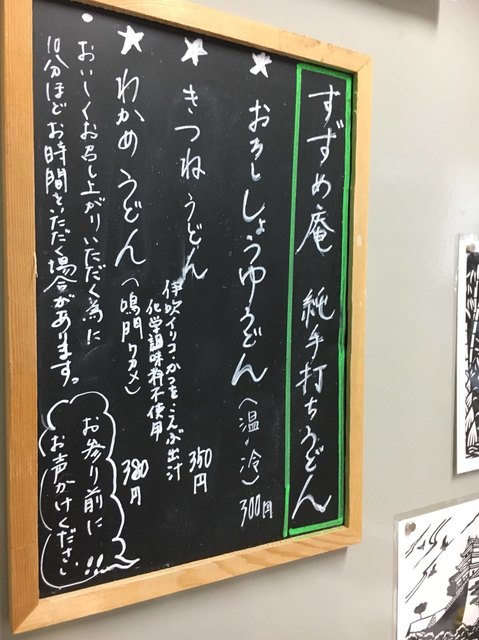 すずめ庵 純手打ちうどん
★ おろししょうゆうどん(温・冷) 300円
★ きつねうどん 350円
伊吹イリコ・かつを・こんぶ出汁
化学調味料不使用
★ わかめうどん(鳴門ワカメ) 380円
・おいしくお召し上がりいただく為に
10分ほどお時間をいただく場合があります。
お参り前に
お声かけください!!